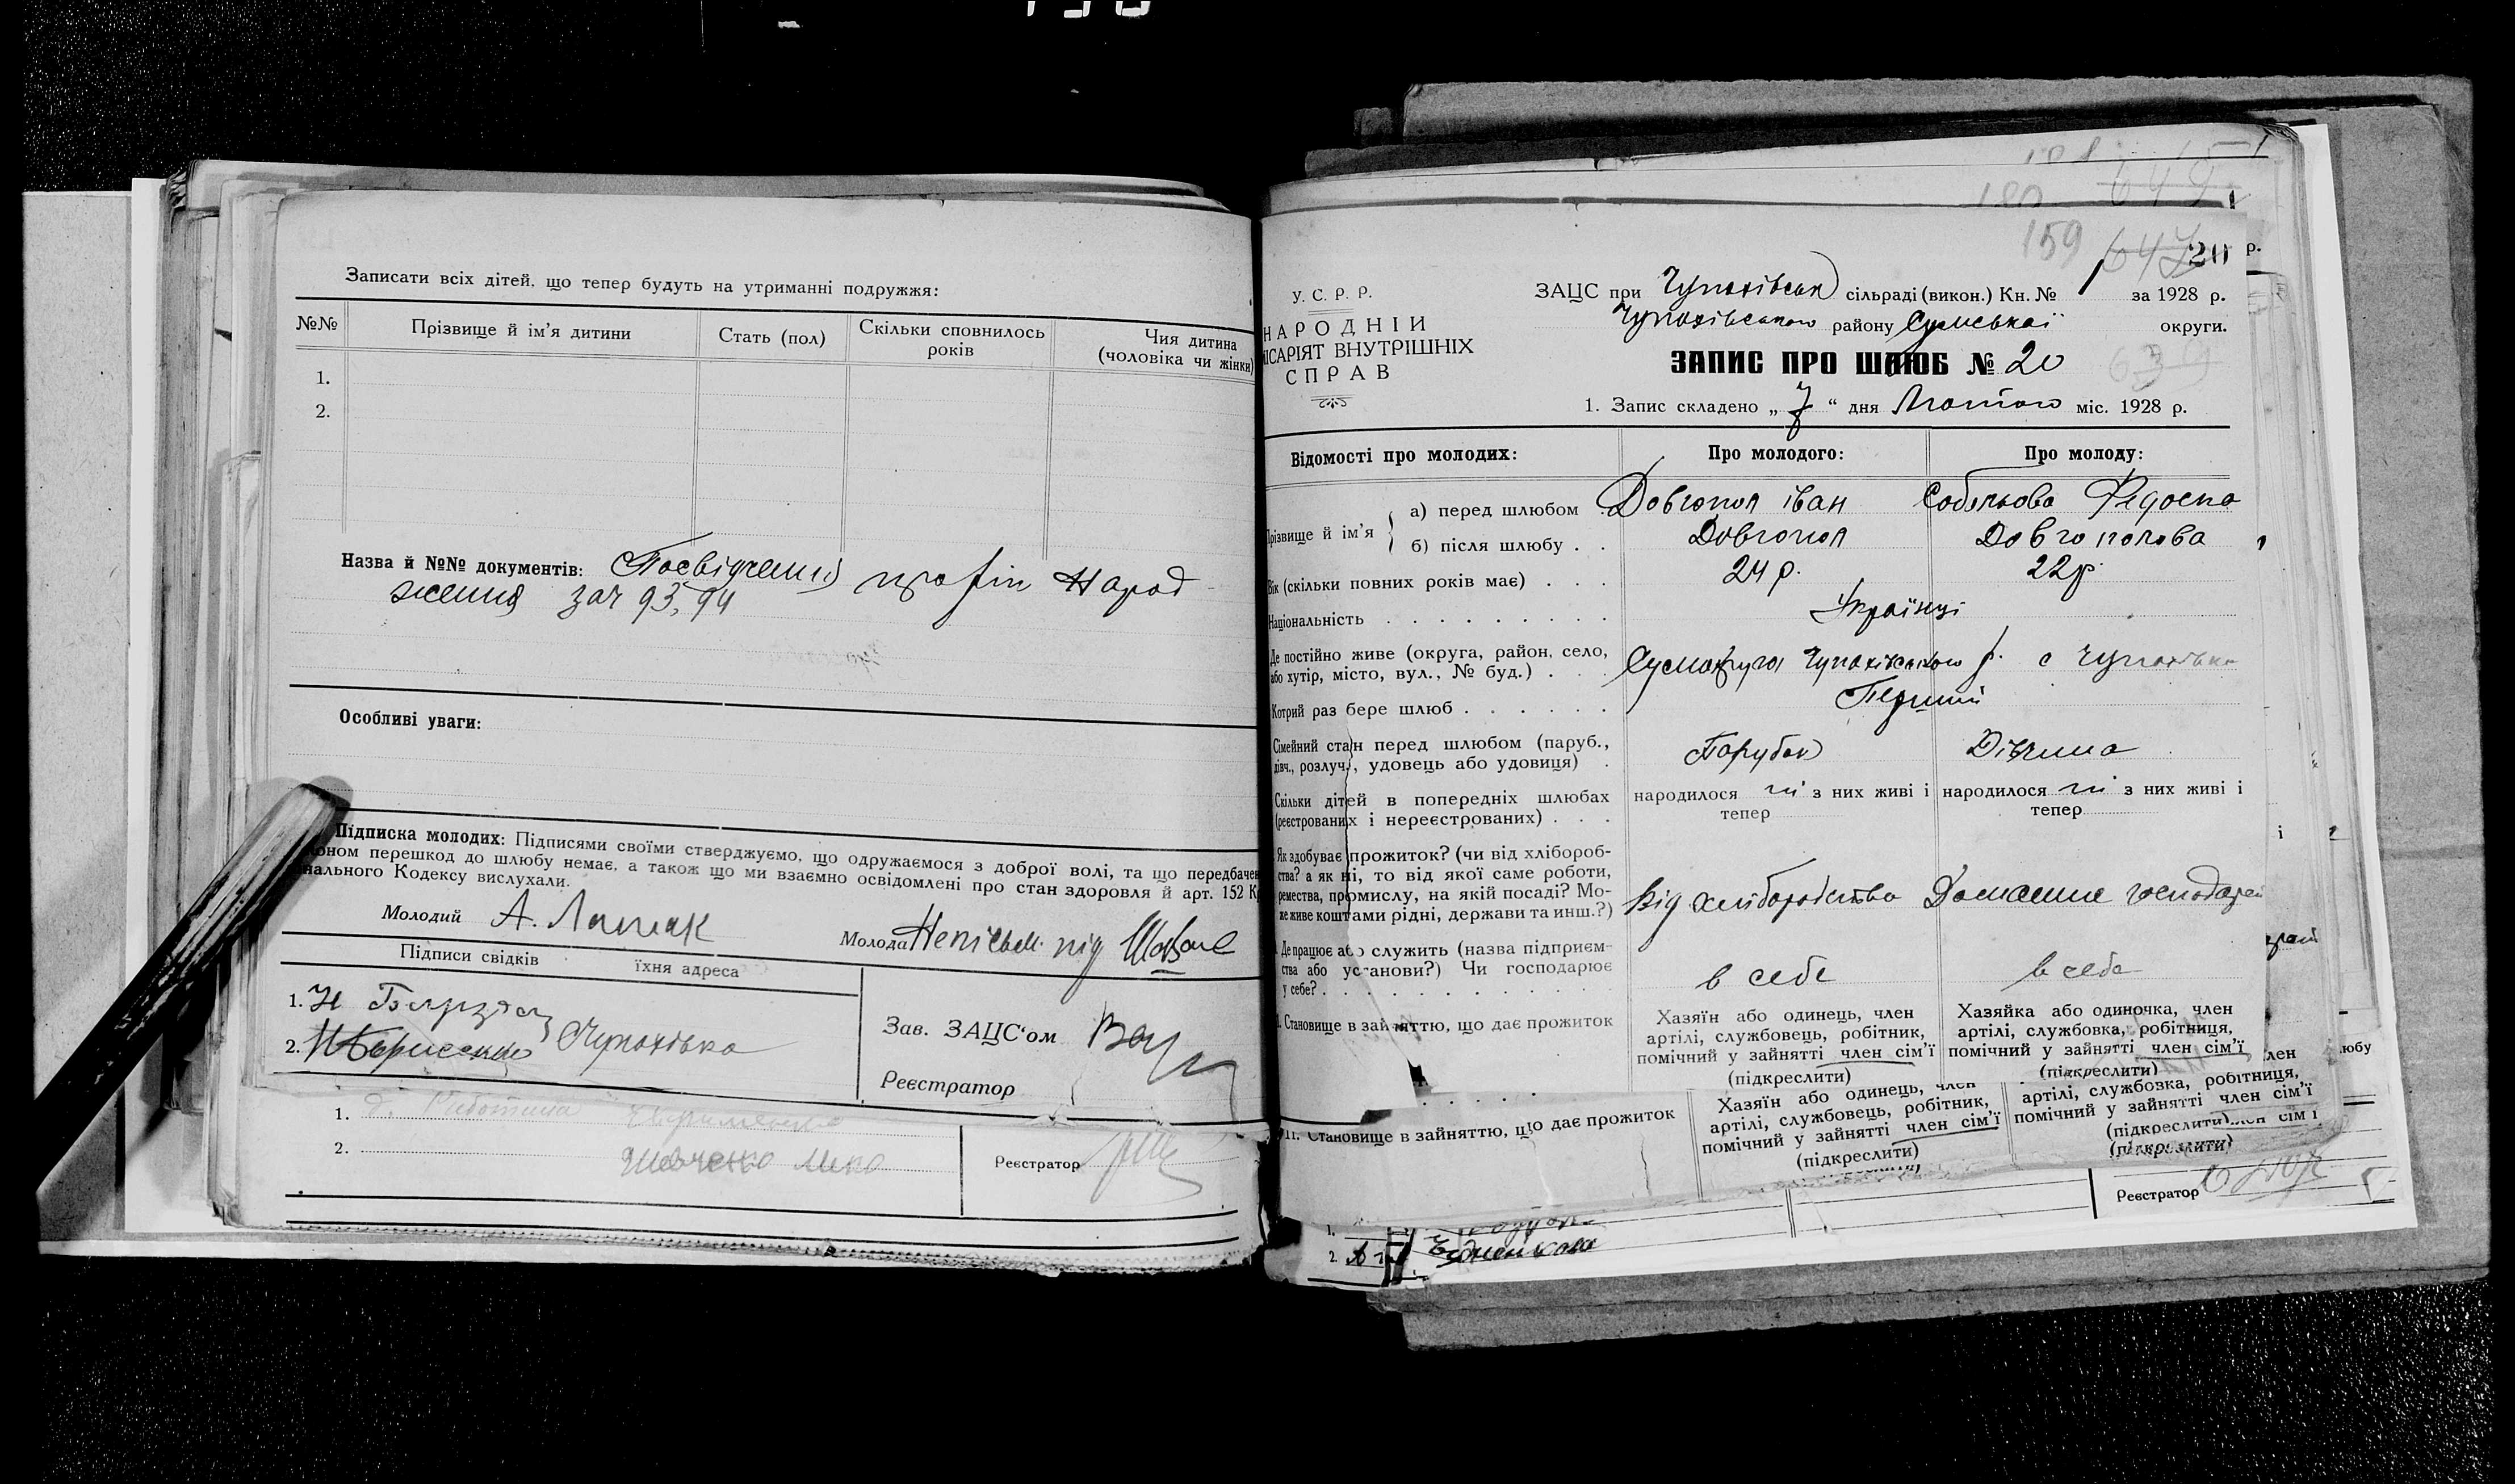 Записати всіх дітей, що тепер будуть на утриманні подружжя:
№№ Прізвище й ім'я дитини Стать (пол) Скільки сповнилось років Чия дитина (чоловіка чи жінки)
1.
2.
Назва й №№ документів: Посвідчення про рік Народ-
ження зач 93, 94
Особливі уваги:
Підписка молодих: Підписями своїми стверджуємо, що одружаємося з доброї волі, та що передбачен
оном перешкод до шлюбу немає, а також що ми взаємно освідомлені про стан здоровля й арт. 152 К
нального Кодексу вислухали.
Молодий А. Молода Неписьм. під
Підписи свідків їхня адреса
1. Н
2. Чупахівка
Зав. ЗАЦС'ом
Реєстратор
1.
2. Шевченко
Реєстратор
159 647 20
У. С. Р. Р.
НАРОДНІЙ
ІСАРІЯТ ВНУТРІШНІХ
СПРАВ
ЗАЦС при Чупахівськ сільраді (викон.) Кн. № 1 за 1928 р.
Чупахівського району Сумської округи.
ЗАПИС ПРО ШЛЮБ № 20
639
1. Запис складено „ 7 “ дня Лютого міс. 1928 р.
Відомості про молодих: Про молодого: Про молоду:
Прізвище й ім'я
а) перед шлюбом Довгопол Іван Собельова Федоска
б) після шлюбу Довгопол Довгополова
Вік (скільки повних років має) 24 р. 22 р.
Національність Українці
Де постійно живе (округа, район, село,
або хутір, місто, вул., № буд.) Сумокруга Чупахівського р. с Чупахівка
Котрий раз бере шлюб Перший
Сімейний стан перед шлюбом (паруб.,
дівч., розлуч., удовець або удовиця) Парубок Дівчина
Скільки дітей в попередніх шлюбах
(реєстрованих і нереєстрованих)
народилося ні з них живі і тепер
народилося ні з них живі і тепер
Як здобуває прожиток? (чи від хлібороб-
ства? а як ні, то від якої саме роботи,
ремества, промислу, на якій посаді? Мо-
же живе коштами рідні, держави та инш.?) Від хліборобства Домашнє господарст
Де працює або служить (назва підприєм-
ства або установи?) Чи господарює
у себе? в себе в себе
Становище в зайняттю, що дає прожиток
Хазяїн або одинець, член
артілі, службовець, робітник,
помічний у зайнятті член сім'ї
(підкреслити)
Хазяйка або одиночка, член
артілі, службовка, робітниця,
помічний у зайнятті член сім'ї
(підкреслити)
11. Становище в зайняттю, що дає прожиток
Хазяїн або одинець, член
артілі, службовець, робітник,
помічний у зайнятті член сім'ї
(підкреслити)
артілі, службовка, робітниця,
помічний у зайнятті член сім'ї
(підкреслити)
Реєстратор
1.
2.